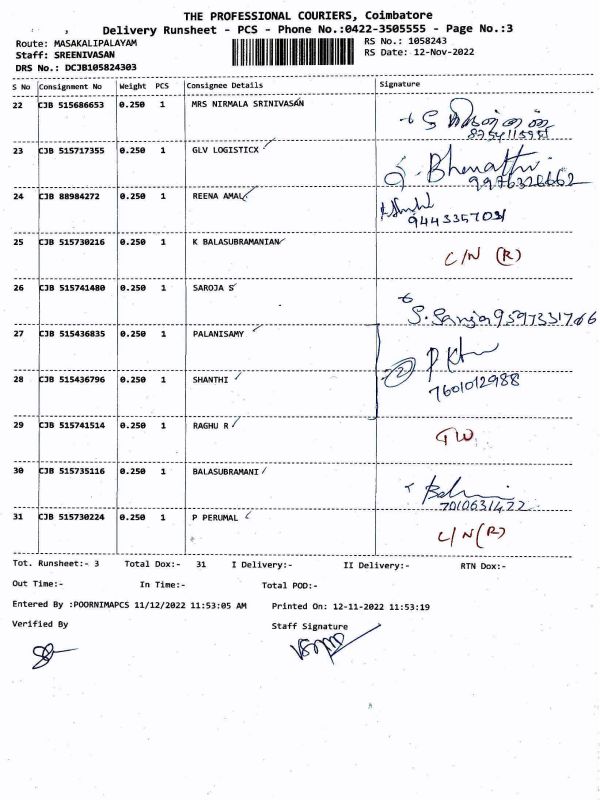 THE PROFESSIONAL COURIERS, Coimbatore
Delivery Runsheet - PCS - Phone No.:0422-3505555 - Page No.:3
Route: MASAKALIPALAYAM RS No.: 1058243
Staff: SREENIVASAN RS Date: 12-Nov-2022
DRS No.: DCJB105824303
S No Consignment No Weight PCS Consignee Details Signature
22 CJB 515686653 0.250 1 MRS NIRMALA SRINIVASAN
23 CJB 515717355 0.250 1 GLV LOGISTICX
9976326662
24 CJB 88984272 0.250 1 REENA AMAL
9443357031
25 CJB 515730216 0.250 1 K BALASUBRAMANIAN C/N (R)
26 CJB 515741480 0.250 1 SAROJA S
S. Saroja 9597331766
27 CJB 515436835 0.250 1 PALANISAMY
28 CJB 515436796 0.250 1 SHANTHI 7601012988
29 CJB 515741514 0.250 1 RAGHU R
30 CJB 515735116 0.250 1 BALASUBRAMANI
7010631422
31 CJB 515730224 0.250 1 P PERUMAL C/N (R)
Tot. Runsheet:- 3 Total Dox:- 31 I Delivery:- II Delivery:- RTN Dox:-
Out Time:- In Time:- Total POD:-
Entered By :POORNIMAPCS 11/12/2022 11:53:05 AM Printed On: 12-11-2022 11:53:19
Verified By Staff Signature